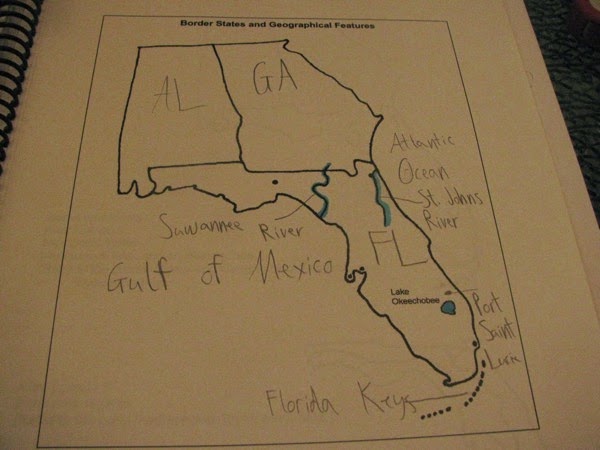 Border States and Geographical Features
AL
GA
Atlantic
Ocean
St. Johns
River
Suwannee River
FL
Gulf of Mexico
Lake
Okeechobee
Port
Saint
Lucie
Florida Keys